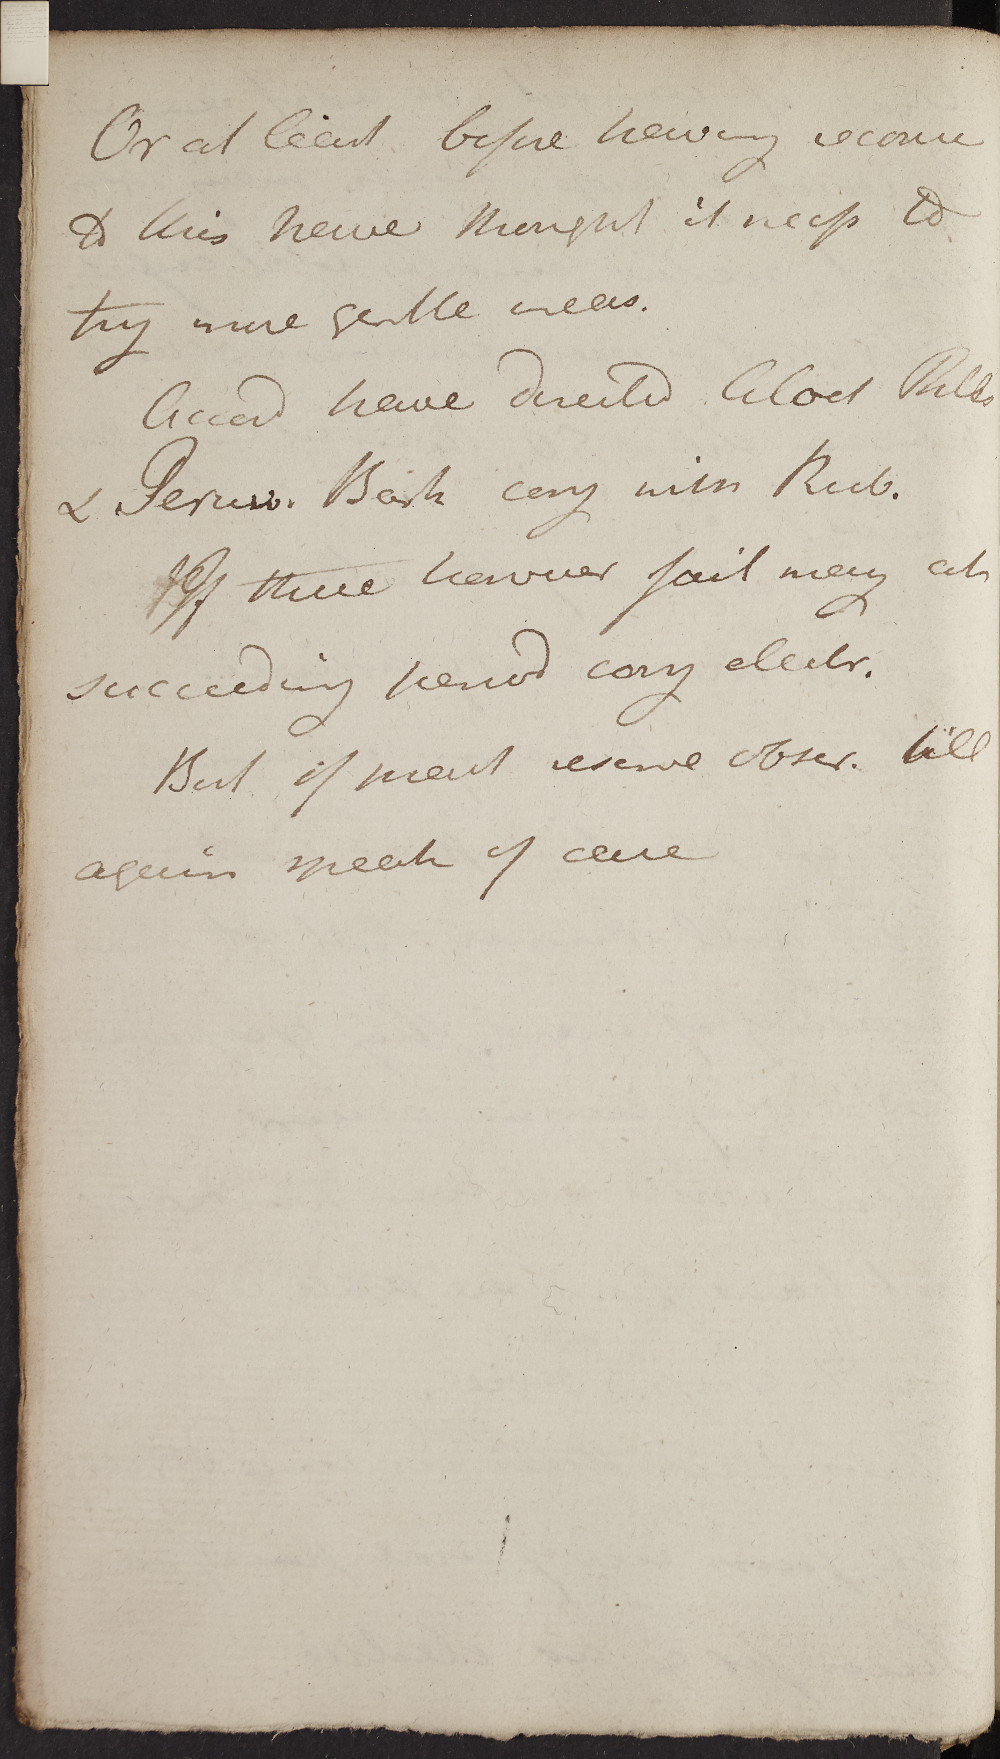 Or at least before having recourse
to this have thought it necess to
try more gentle meas.
Accord have directed Aloet Pills
& Peruv. Bark conj with Rub.
If these however fail may at
succeeding period conj electr.
But if pres&#x27;t reserve obser. till
again speak of case